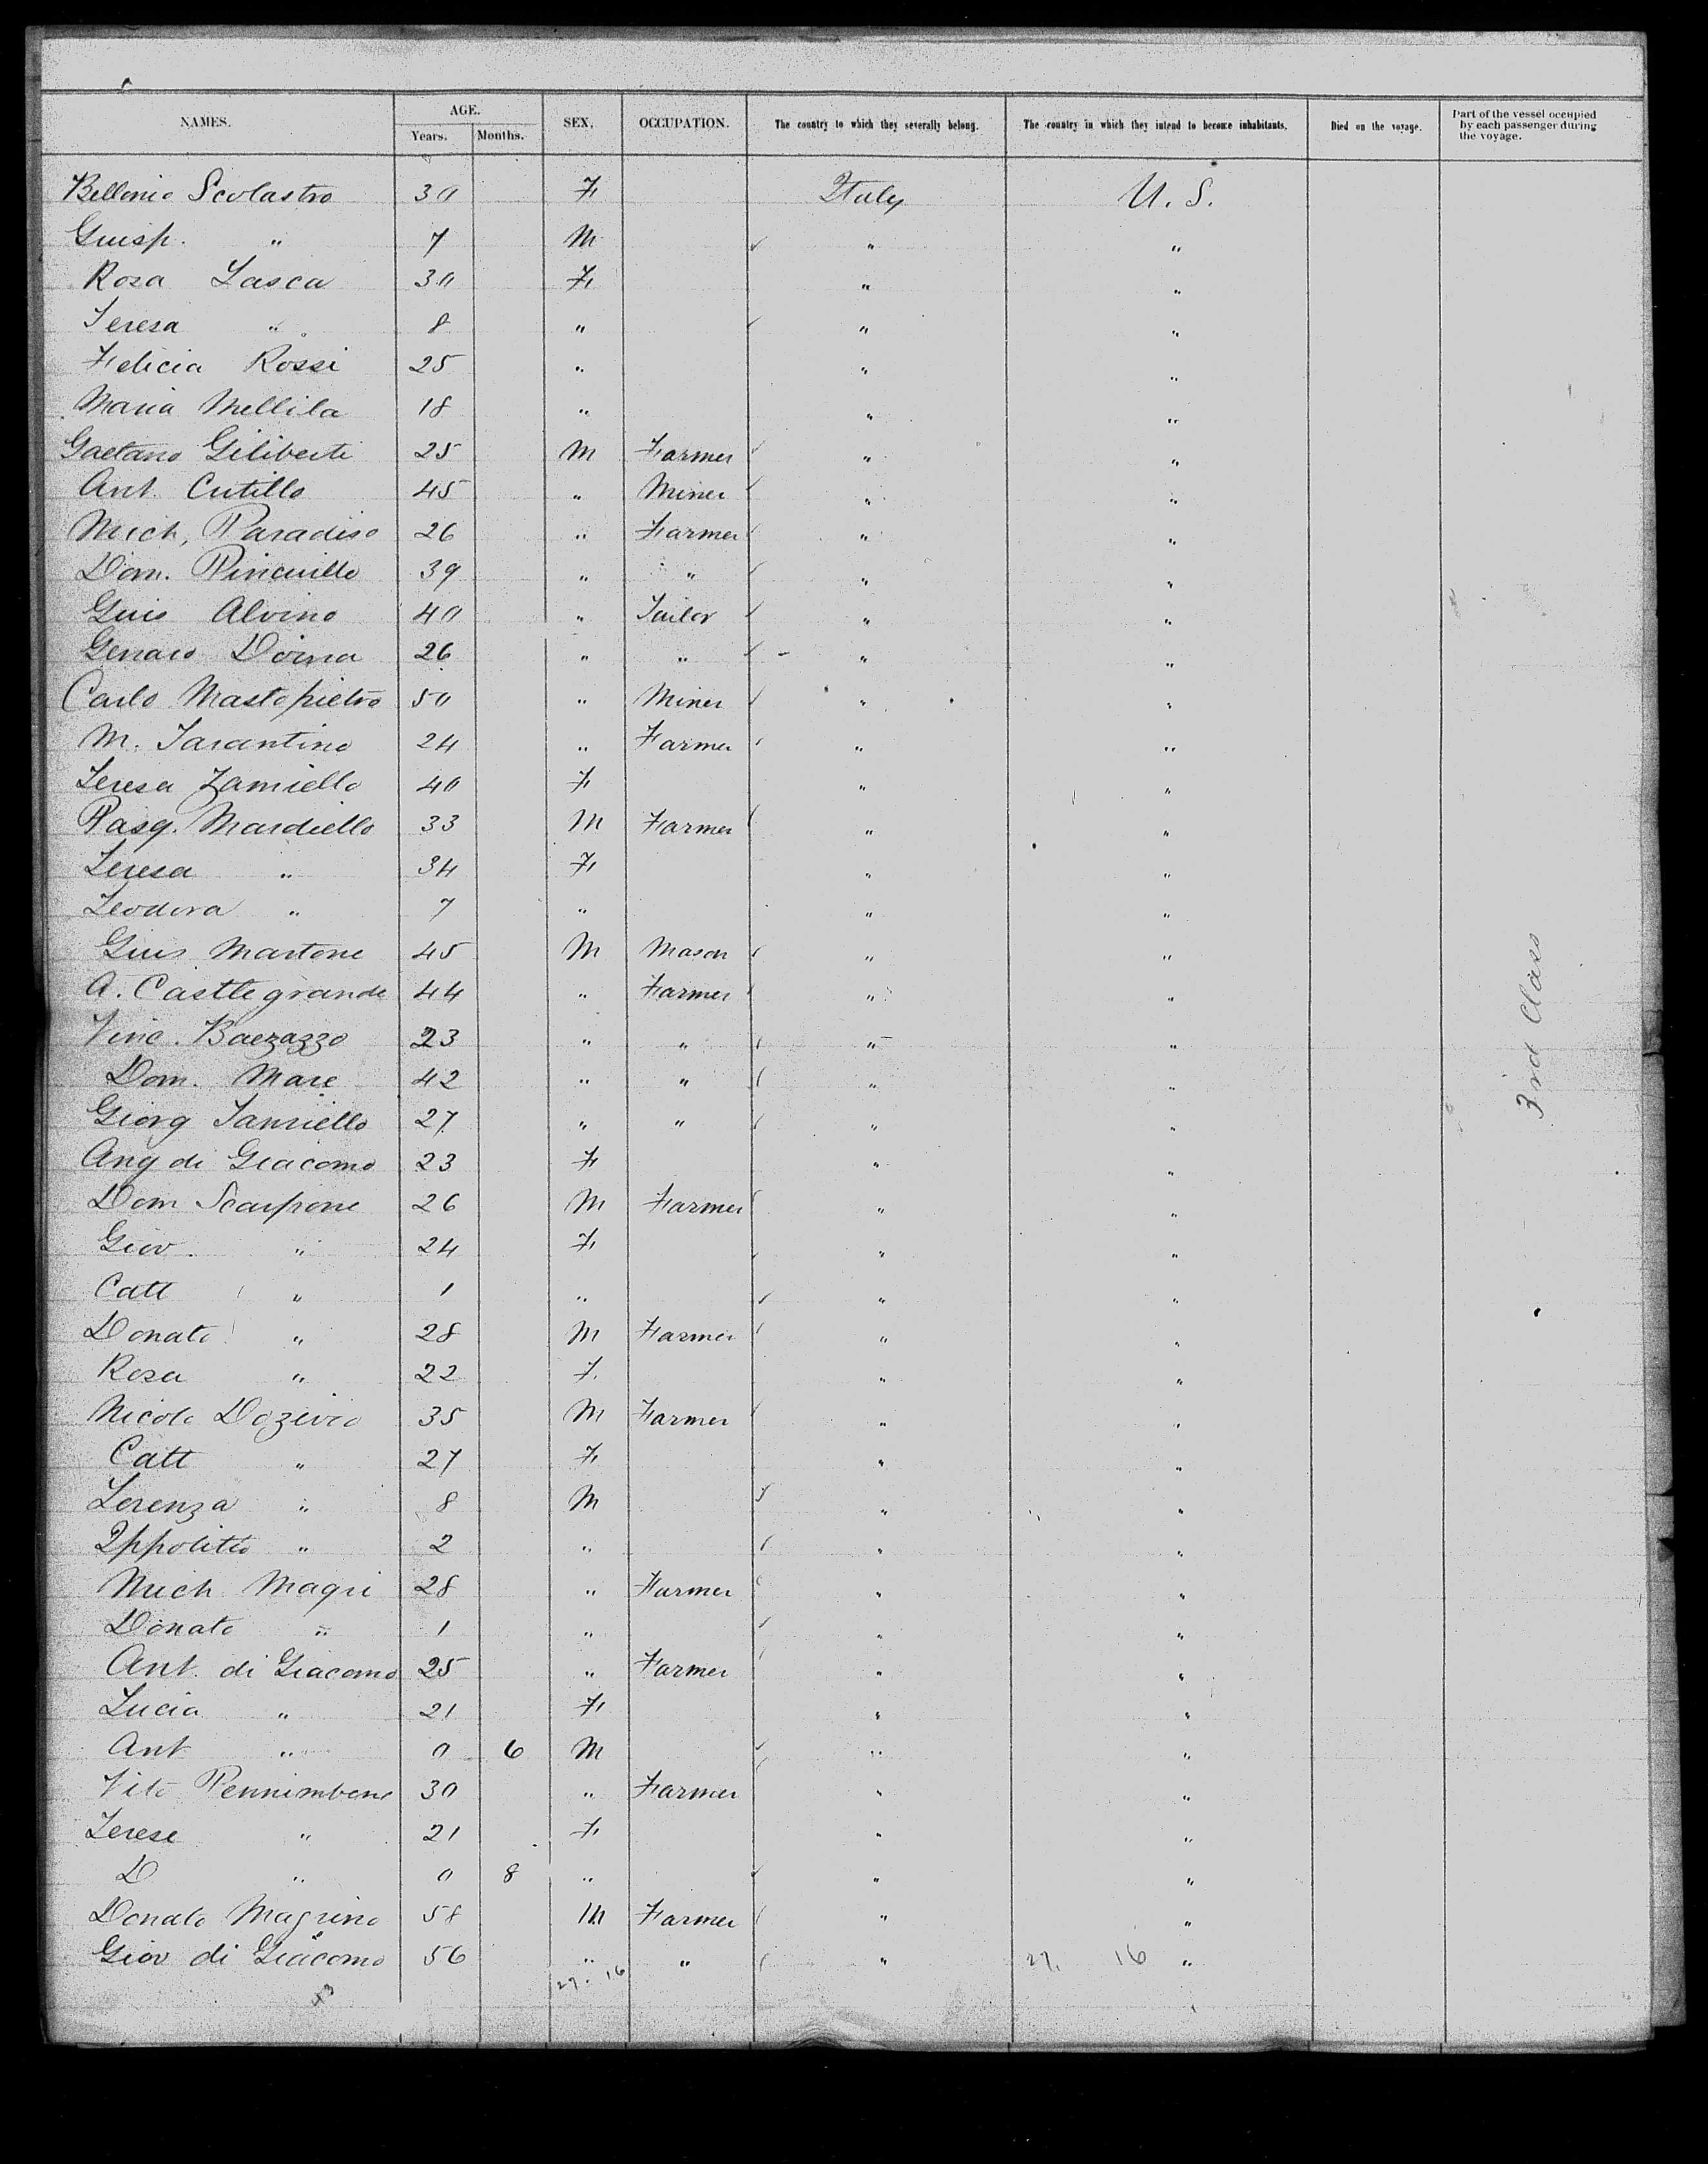 NAMES. AGE. SEX. OCCUPATION. The country to which they severally belong. The country in which they intend to become inhabitants. Died on the voyage. Part of the vessel occupied by each passenger during the voyage.
Years. Months.
Bellonio Scolastro 30 F Italy U. S.
Guisp. " 7 M " "
Rosa Lasca 30 F " "
Teresa " 8 " " "
Felicia Rossi 25 " " "
Maria Mellila 18 " " "
Gaetano Giliberti 25 M Farmer " "
Ant. Cutillo 45 " Miner " "
Mich, Paradiso 26 " Farmer " "
Dom. 39 " " " "
Guis Alvino 40 " Tailor " "
Genaro Doina 26 " " " "
Carlo Mastopietro 50 " Miner " "
M. Tarantino 24 " Farmer " "
Teresa Zamiello 40 F " "
Pasq. Mardiello 33 M Farmer " "
Teresa " 34 F " "
Teodora " 7 " " "
Guis Martone 45 M Mason " "
A. Castlegrande 44 " Farmer " "
Vinc. Baezazzo 23 " " " "
Dom. Mare 42 " " " "
Giorg Ianniello 27 " " " "
Ang di Giacomo 23 F " "
Dom Scarpone 26 M Farmer " "
Giov. " 24 F " "
Catt " 1 " " "
Donato " 28 M Farmer " "
Rosa " 22 F. " "
Nicola Dozevio 35 M Farmer " "
Catt " 27 F " "
Lorenza " 8 M " "
Ippolitto " 2 " " "
Mich Magri 28 " Farmer " "
Donato " 1 " " "
Ant. di Giacomo 25 " Farmer " "
Lucia " 21 F " "
Ant " 0 6 M " "
Vito Pennimbene 30 " Farmer " "
Terese " 21 F " "
D " 0 8 " " "
Donato Magrino 58 M Farmer " "
Giov di Giacomo 56 " " " 27. 16 "
27. 16
43
3rd Class